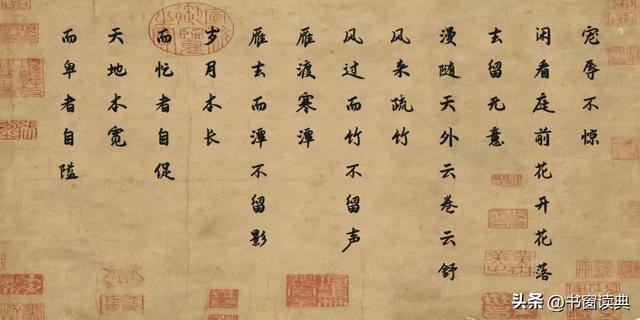 宠辱不惊
闲看庭前花开花落
去留无意
漫随天外云卷云舒
风来疏竹
风过而竹不留声
雁渡寒潭
雁去而潭不留影
岁月本长
而忙者自促
天地本宽
而卑者自隘
头条 @书窗读典